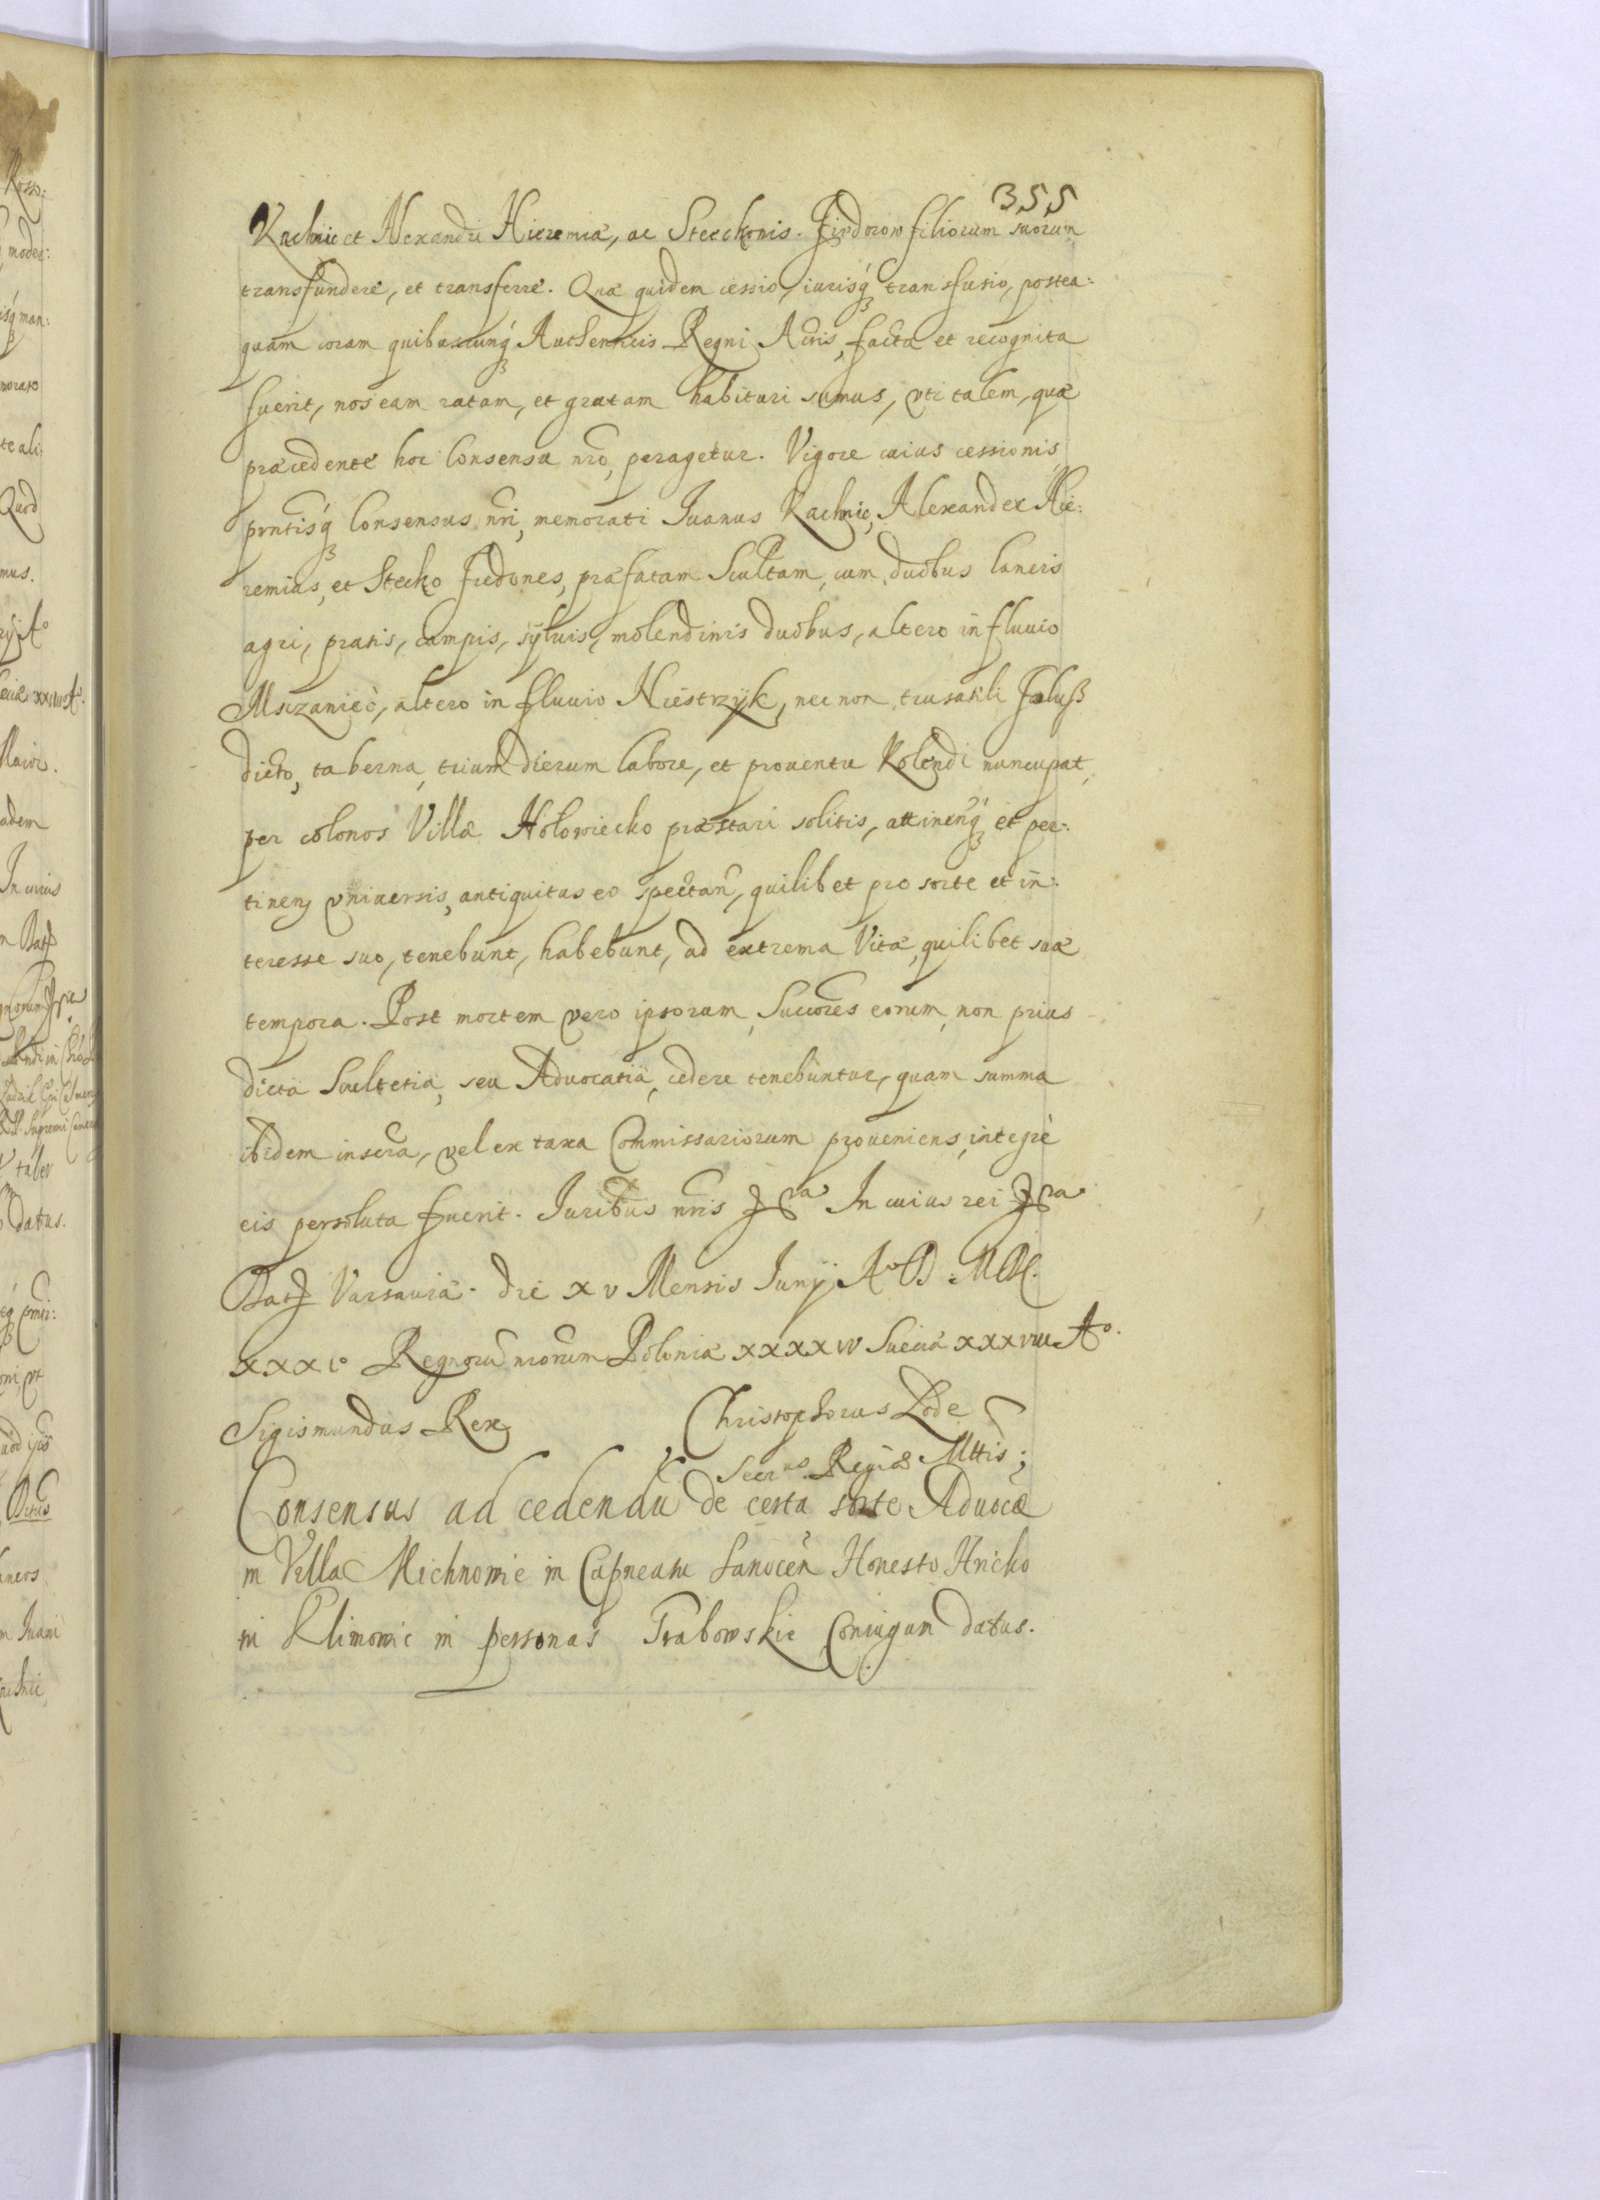 355
Kachnic et Alexandri Hieremiæ, ac Steckonis. Fiedorow filiorum suorum
transfundere, et transferre. Quæ quidem cessio, iurisq́ȝ transfusio, postea:
quam coram quibuscunq́ȝ Authenticis Regni Actis, facta et recognita
fuerit, nos eam ratam, et gratam habituri sumus, vti talem, quæ
præcedente hoc Consensu nrō, peragetur. Vigore cuius cessionis,
prntisq́ȝ Consensus nri, memorati Iuanus Kachnic, Alexander Hie:
remias, et Stecko Fiedones, præfatam Scultam, cum duobus Laneis
agri, pratis, campis, sÿluis, molendinis duobus, altero in fluuio
Mszaniec, altero in fluuio Niestrzÿk, nec non trusatili Foluß
dicto, taberna, trium dierum labore, et prouentu Kolendi nuncupat,
per colonos Villæ Holowiecko præstari solitis, attinenq́ȝ et per:
tinenȝ vniuersis, antiquitus eo spectan, quilibet pro sorte et in:
teresse suo, tenebunt, habebunt, ad extrema Vitæ, quilibet suæ
tempora. Post mortem vero ipsorum, Succores eorum, non prius
dicta Scultetia, seu Aduocatia, cedere tenebuntur, quam summa
ibidem inscra, vel ex taxa Commissariorum proueniens, integrè
eis persoluta fuerit. Iuribus nris In cuius rei
Dat Varsauiæ. die xv Mensis Iunÿ Aº D: MDC.
xxxiº Regnorū nrorum Poloniæ xxxxiv Sueciæ xxxviii Aº.
Sigismundus Rex
Christophorus Lode
Secrus Regiæ Mttis;
Consensus ad cedendū de certa sorte Aduocæ
in Villa Michnowie in Capneatu Sanocen Honesto Hricko
wi Klimowic in personas Grabowskie Coniugun datus.